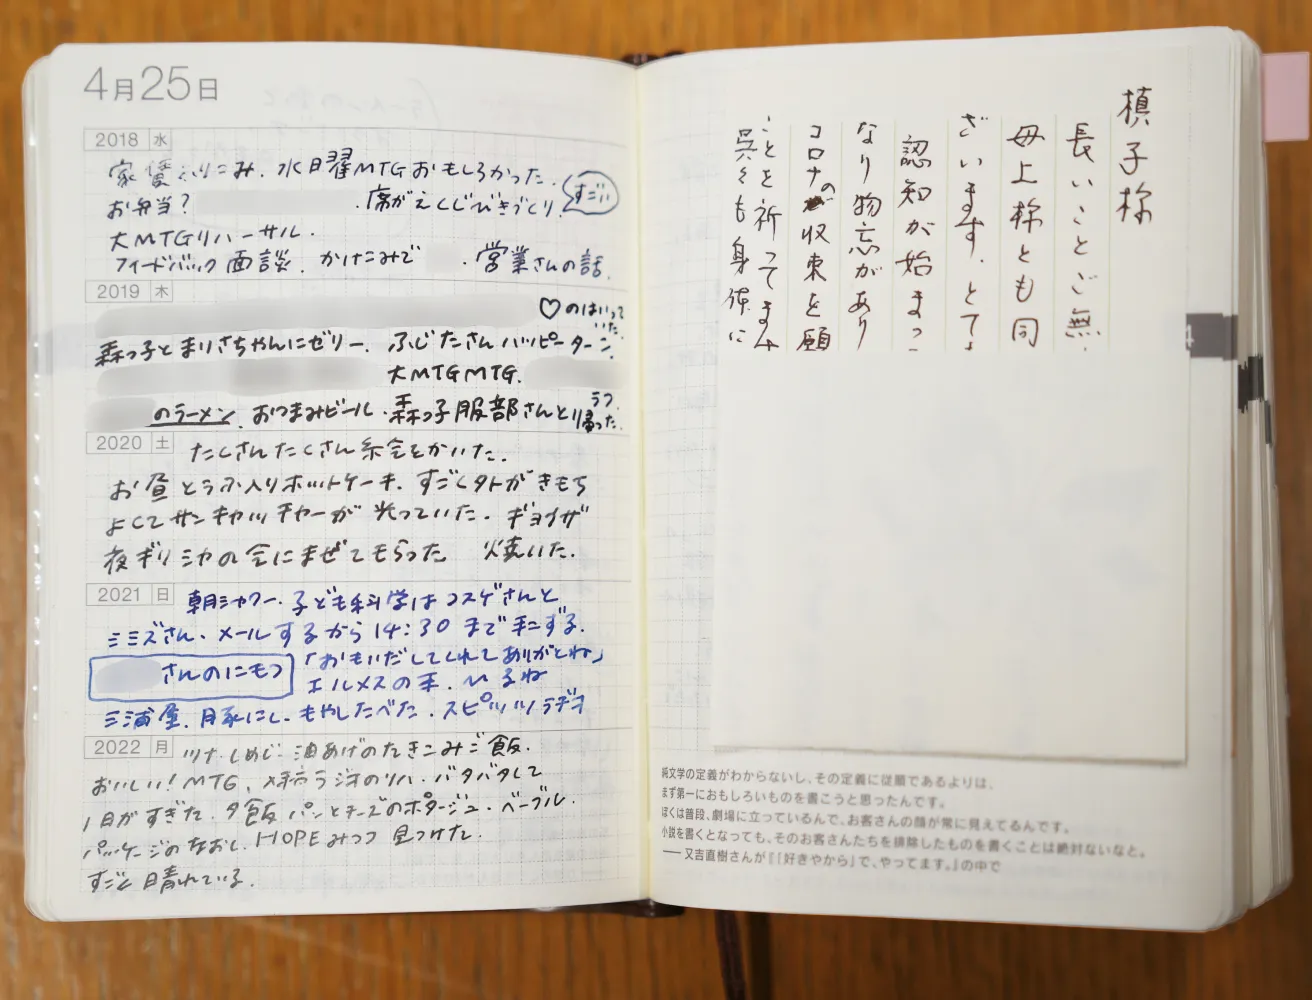 4月25日
2018 水
家賃ふりこみ、水曜MTGおもしろかった、
お弁当? .席がえくじびきづくり. すごい
大MTGリハーサル.
フィードバック面談、かけこみで . 営業さんの話.
2019 木
♡のはいって
いた
森っ子とまりさちゃんにゼリー、ふじたさんハッピーターン.
大MTGMTG.
のラーメン、おつまみビール.森っ子服部さんと帰った.
2020 土
たくさんたくさん絵をかいた.
お昼とうふ入りホットケーキ. すごく外がきもち
よくてサンキャッチャーが光っていた. ギョウザ
夜ギリシャの会にまぜてもらった 焼いた.
2021 日
朝シャワー.子ども科学はコスゲさんと
ミミズさん、メールするから14:30まで手こする.
さんのにもつ 「おもいだしてくれてありがとね」
エルメスの手.いるね
三浦屋.豚にし、もやしたべた.スピッツラヂオ
2022 月
ツナ、しめじ、油あげのたきこみご飯.
おいしい!MTG、 のリハ.バタバタして
1日がすぎた.夕飯パンとチーズのポタージュ.ベーグル.
パッケージのなおし.HOPEみっつ見つけた.
すごく晴れている.
槙子様
長いことご無
母上様とも同
ざいます.とても
認知が始まっ
なり物忘があり
コロナの収束を願
ことを祈ってます
呉々も身体に
純文学の定義がわからないし、その定義に従順であるよりは、
まず第一におもしろいものを書こうと思ったんです。
ぼくは普段、劇場に立っているんで、お客さんの顔が常に見えてるんです。
小説を書くとなっても、そのお客さんたちを排除したものを書くことは絶対ないなと。
── 又吉直樹さんが『「好きやから」で、やってます。』の中で